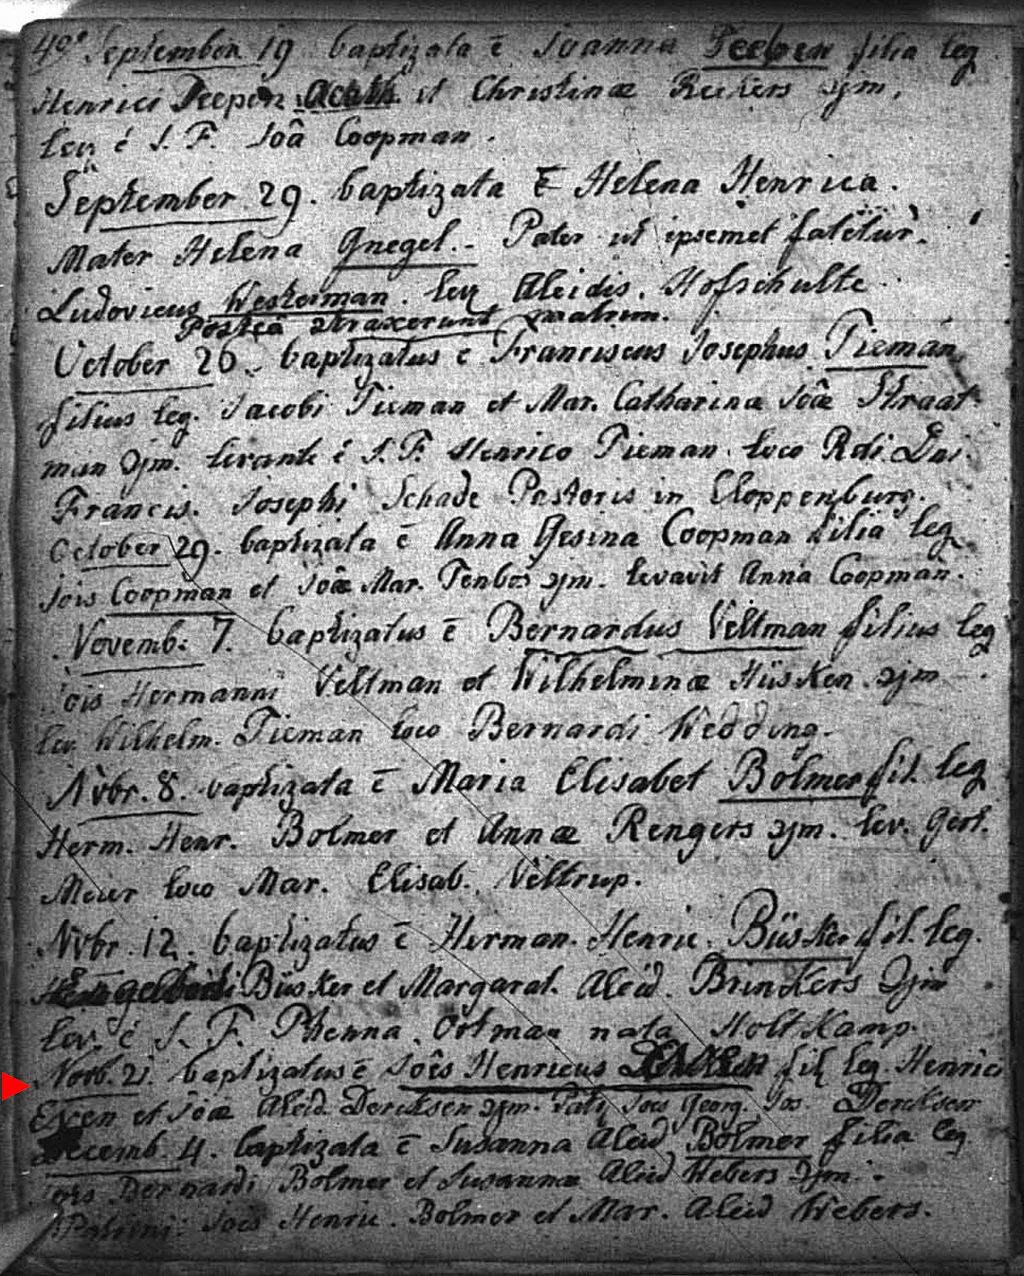 September 19 baptizata ē Joanna Teepen filia leg
Henrici Teepen et Christinæ Reekers ejm.
lev. é S. F. Joâ Coopman.
September 29. baptizata ē Helena Henrica.
Mater Helena Gnegel.- Pater ut ipsemet fatetur.
Ludovicus Westerman. lev. Aleidis. Hofschulte
Postea matrim.
October 26. baptizatus ē Franciscus Josephus Tieman
filius leg. Jacobi Tieman et Mar. Catharinæ Joâæ Straat-
man ejm. levante é S. F. Henrico Tieman loco Rdi. Dni.
Francis. Josephi Schade Pastoris in Cloppenburg.
October 29. baptizata ē Anna Gesina Coopman filia leg
Jois Coopman et Joâæ Mar. Tenbos ejm. levavit Anna Coopman.
Novemb: 7. baptizatus ē Bernardus Veltman filius leg
Jois Hermanni Veltman et Wilhelminæ Hüsken ejm
lev. Wilhelm. Tieman loco Bernardi Wedding.
Nvbr. 8. baptizata ē Maria Elisabet Bolmer fil. leg
Herm. Henr. Bolmer et Annæ Rengers ejm. lev. Gert.
Meier loco Mar. Elisab. Veltrup.
Nvbr. 12. baptizatus ē Herman. Henric. Büsker fil. leg.
Engelberti Büsker et Margarat. Aleid. Brinkers ejm
lev. é S. F. Phenna Ortman nata Holtkamp.
Novb. 21. baptizatus ē Joês Henricus fil. leg. Henrici
Escen et Joâæ Aleid. Dercksen ejm. Joês Georg. Dercksen
Decemb. 4. baptizata ē Susanna Aleid Bolmer filia leg
Bernardi Bolmer et Susannæ Aleid Webers ejm.
Patrini: Joês Henric. Bolmer et Mar. Aleid Webers.